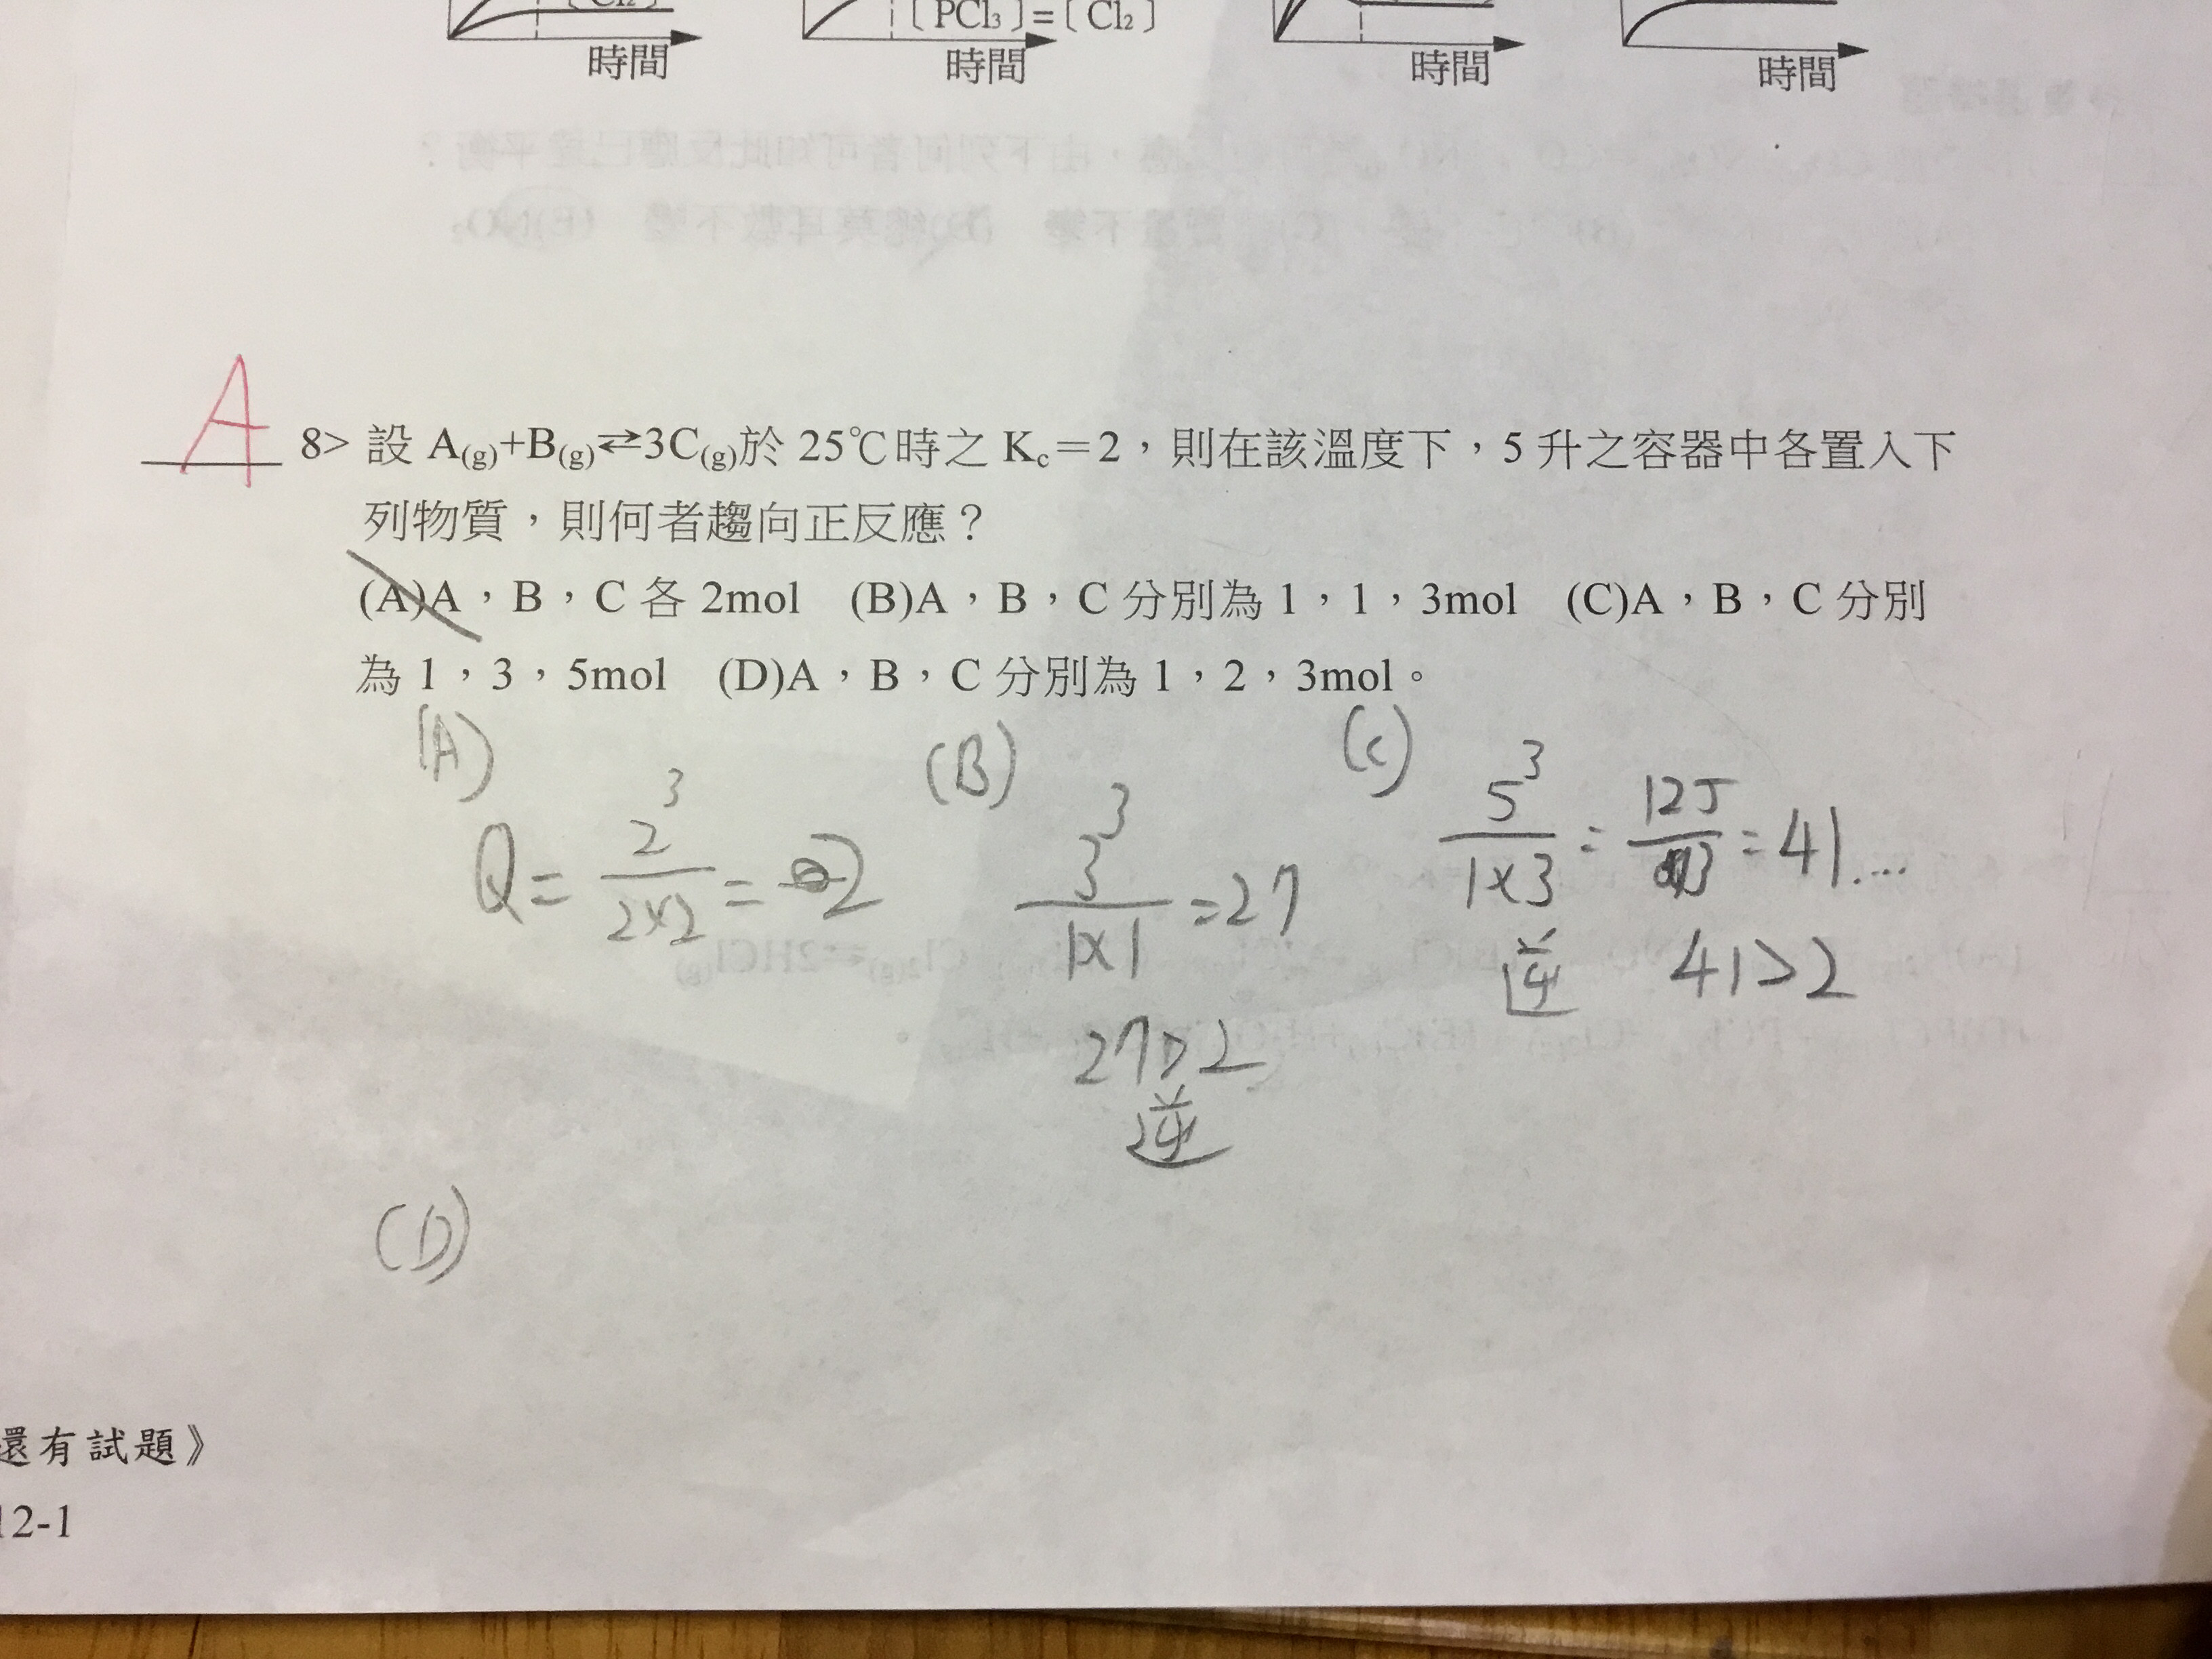 〔Cl₂〕
〔PCl₃〕=〔Cl₂〕
時間 時間 時間 時間
A
8> 設 A(g)+B(g)⇄3C(g)於 25℃時之 Kc=2，則在該溫度下，5 升之容器中各置入下
列物質，則何者趨向正反應？
(A)A，B，C 各 2mol (B)A，B，C 分別為 1，1，3mol (C)A，B，C 分別
為 1，3，5mol (D)A，B，C 分別為 1，2，3mol。
(A)
Q = 2³/2×2 = 2
(B)
3³/1×1 = 27
27>2
逆
(C)
5³/1×3 = 125/3 = 41....
逆 41>2
(D)
還有試題》
12-1